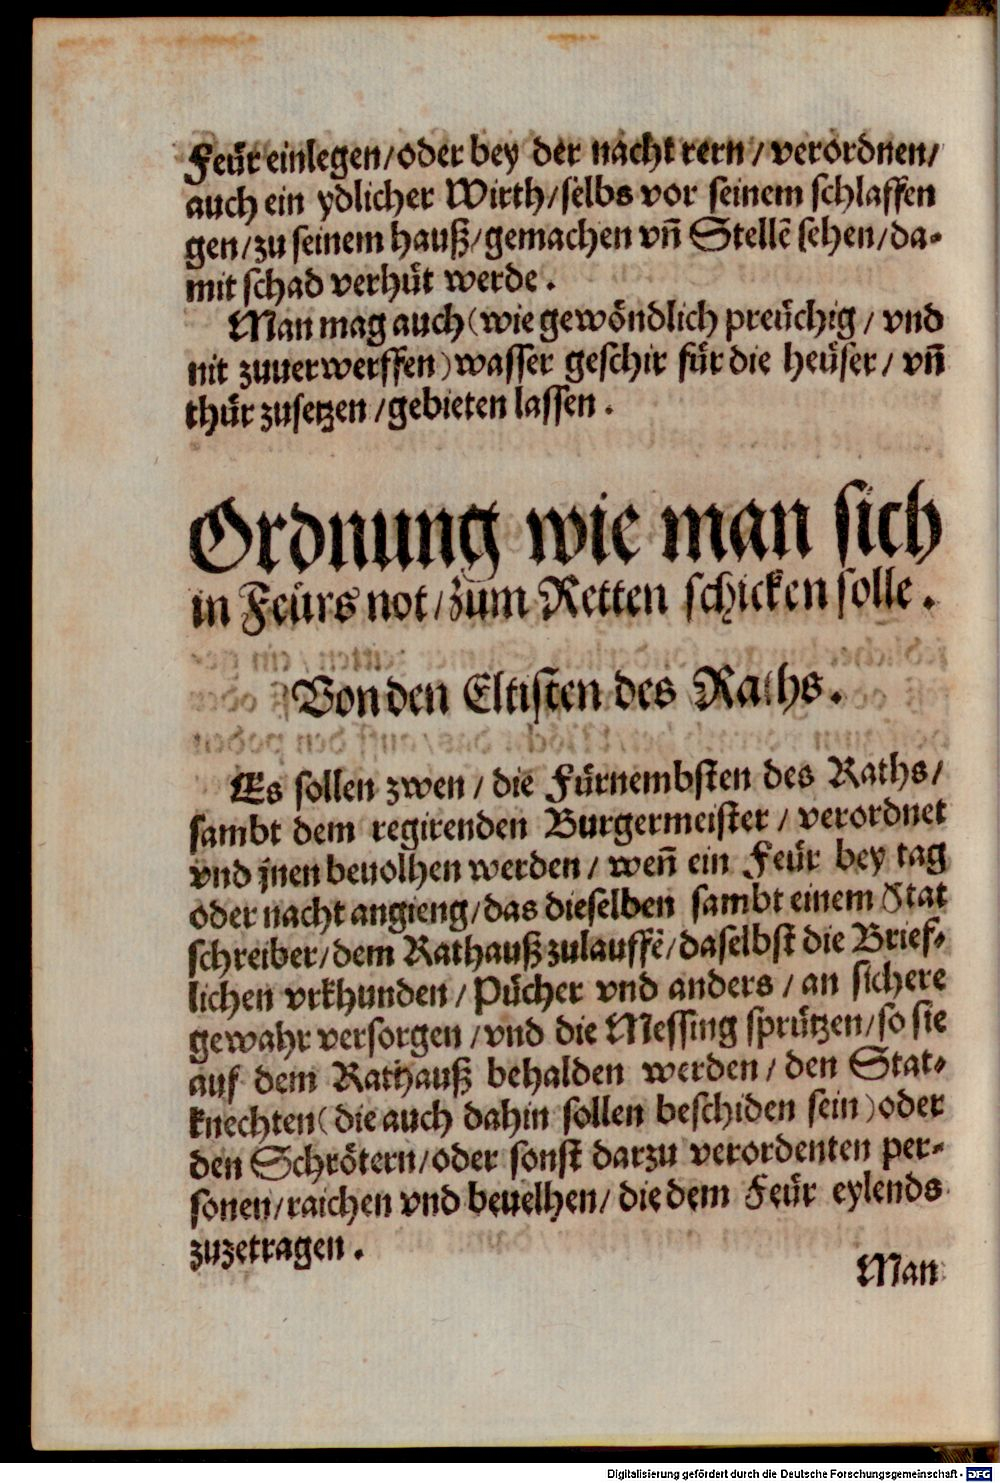 Feür einlegen/oder bey der nacht rern/verordnen/
auch ein ydlicher Wirth/selbs vor seinem schlaffen
gen/zu seinem hauß/gemachen vñ Stellē sehen/da-
mit schad verhüt werde.
Man mag auch (wie gewöndlich preüchig/vnd
nit zuuerwerffen) wasser geschir für die heüser/vñ
thür zusetzen/gebieten lassen.
Ordnung wie man sich
in Feürs not/zum Retten schicken solle.
Von den Eltisten des Raths.
Es sollen zwen/die Fürnembsten des Raths/
sambt dem regirenden Burgermeister/verordnet
vnd jnen beuolhen werden/weñ ein Feür bey tag
oder nacht angieng/das dieselben sambt einem Stat
schreiber/dem Rathauß zulauffē/daselbst die Brief-
lichen vrkhunden/Pücher vnd anders/an sichere
gewahr versorgen/vnd die Messing sprützen/so sie
auf dem Rathauß behalden werden/den Stat-
knechten (die auch dahin sollen beschiden sein) oder
den Schrötern/oder sonst darzu verordenten per-
sonen/raichen vnd beuelhen/die dem Feür eylends
zuzetragen.
Man
Digitalisierung gefördert durch die Deutsche Forschungsgemeinschaft - DFG